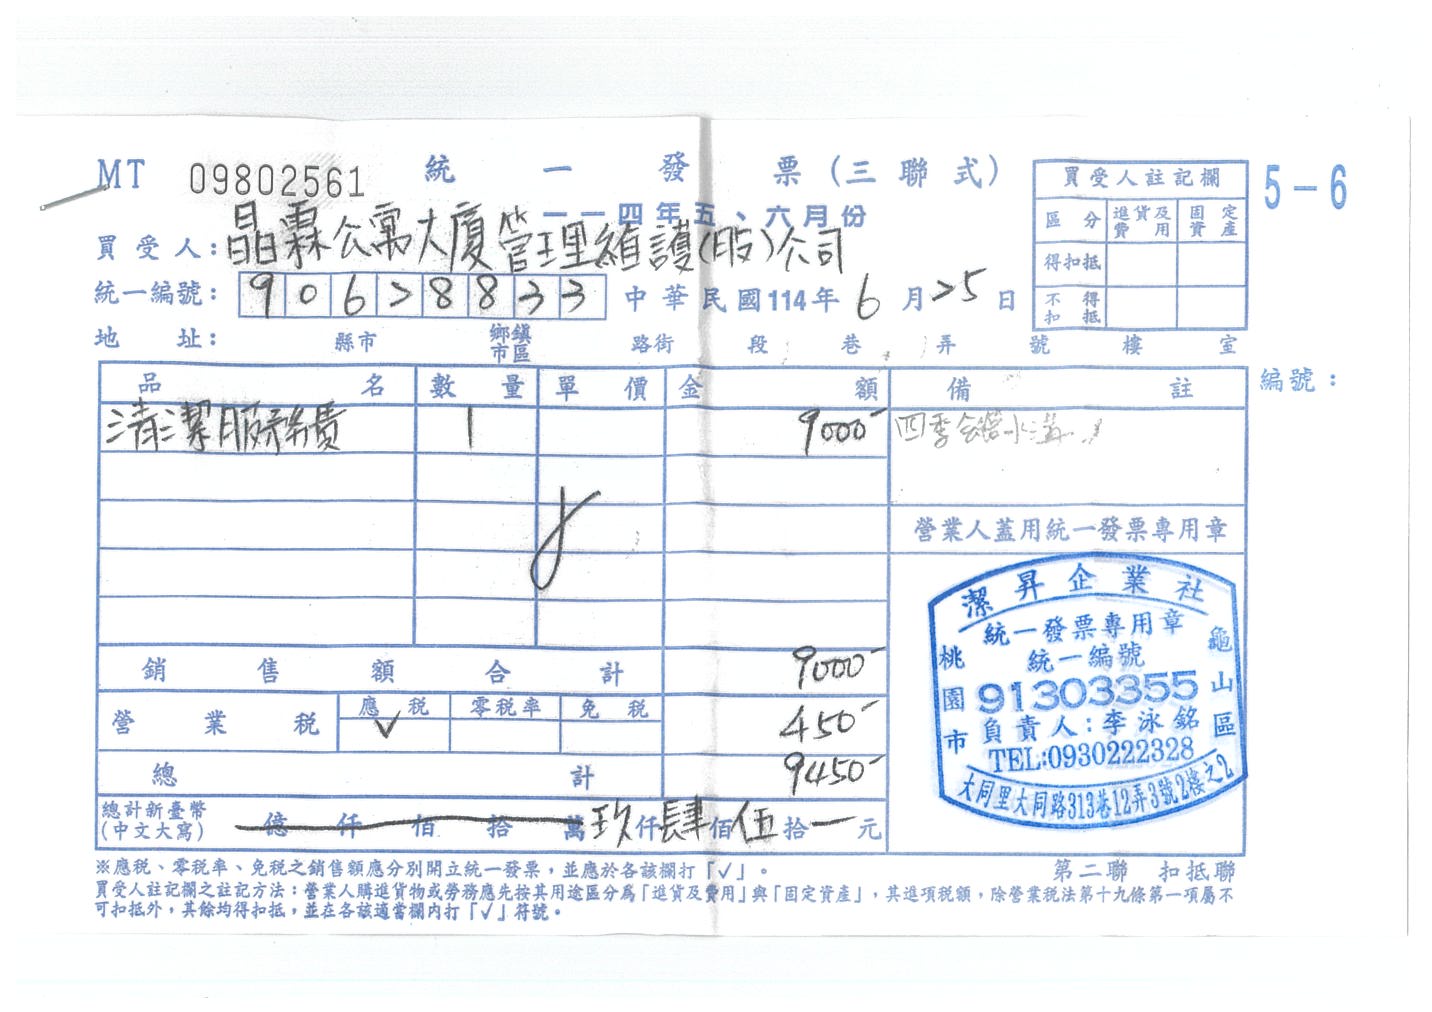 MT 09802561 統一發票(三聯式) 5-6
一一四年五、六月份
買受人:晶霖公寓大廈管理維護(股)公司
統一編號:90628833 中華民國114年6月25日
地址: 縣市 鄉鎮市區 路街 段 巷 弄 號 樓 室
買受人註記欄
區分 進貨及費用 固定資產
得扣抵
不得扣抵
編號:
品名 數量 單價 金額 備註
清潔服務費 1 9000 四季會館水溝
營業人蓋用統一發票專用章
銷售額合計 9000
營業稅 應稅 ✓ 零稅率 免稅 450
總計 9450
總計新臺幣(中文大寫) 億仟佰拾萬玖仟肆佰伍拾一元
潔昇企業社
統一發票專用章
統一編號
91303355
負責人:李泳銘
TEL:0930222328
桃園市
龜山區
大同里大同路313巷12弄3號2樓之2
※應稅、零稅率、免稅之銷售額應分別開立統一發票,並應於各該欄打「✓」。
第二聯 扣抵聯
買受人註記欄之註記方法:營業人購進貨物或勞務應先按其用途區分為「進貨及費用」與「固定資產」,其進項稅額,除營業稅法第十九條第一項屬不
可扣抵外,其餘均得扣抵,並在各該適當欄內打「✓」符號。